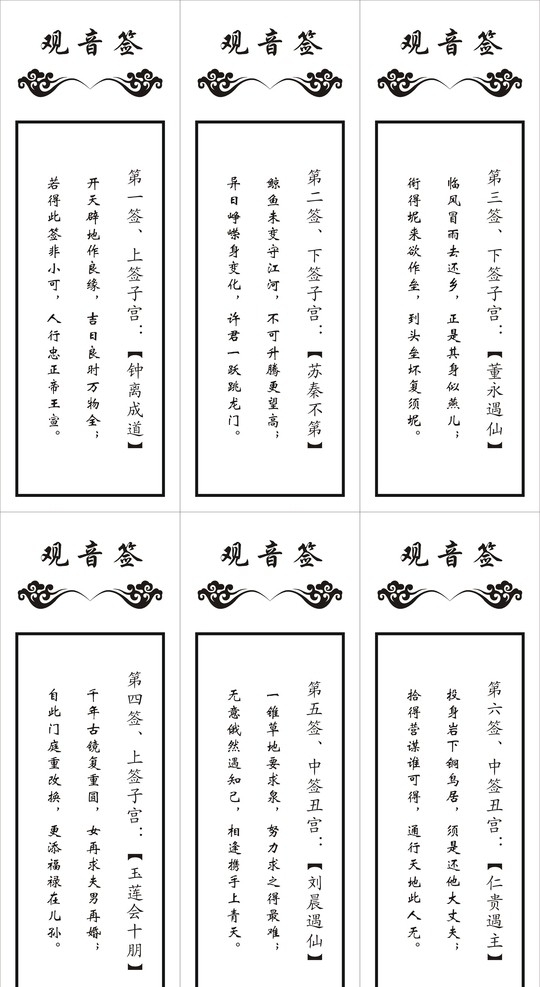 观音签
第一签、上签子宫：【钟离成道】
开天辟地作良缘，吉日良时万物全；
若得此签非小可，人行忠正帝王宣。
观音签
第二签、下签子宫：【苏秦不第】
鲸鱼未变守江河，不可升腾更望高；
异日峥嵘身变化，许君一跃跳龙门。
观音签
第三签、下签子宫：【董永遇仙】
临风冒雨去还乡，正是其身似燕儿；
衔得坭来欲作垒，到头垒坏复须坭。
观音签
第四签、上签子宫：【玉莲会十朋】
千年古镜复重圆，女再求夫男再婚；
自此门庭重改换，更添福禄在儿孙。
观音签
第五签、中签丑宫：【刘晨遇仙】
一锥草地要求泉，努力求之得最难；
无意俄然遇知己，相逢携手上青天。
观音签
第六签、中签丑宫：【仁贵遇主】
投身岩下铜鸟居，须是还他大丈夫；
拾得营谋谁可得，通行天地此人无。